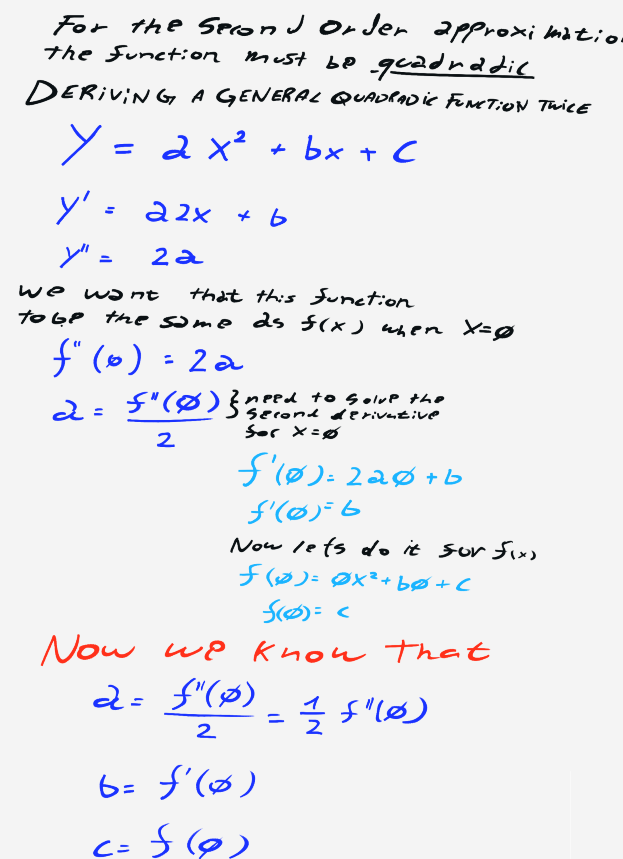 For the second order approximation
the function must be quadradic
DERIVING A GENERAL QUADRADIC FUNCTION TWICE
y = a x² + bx + c
y' = a2x + b
y'' = 2a
we want that this function
to be the same as f(x) when x=ø
f''(ø) = 2a
a = f''(ø)/2 } need to solve the
second derivative
for x=ø
f'(ø)= 2aø + b
f'(ø)= b
Now lets do it for f(x)
f(ø)= øx²+bø+c
f(ø)= c
Now we know that
a = f''(ø)/2 = 1/2 f''(ø)
b= f'(ø)
c= f(ø)